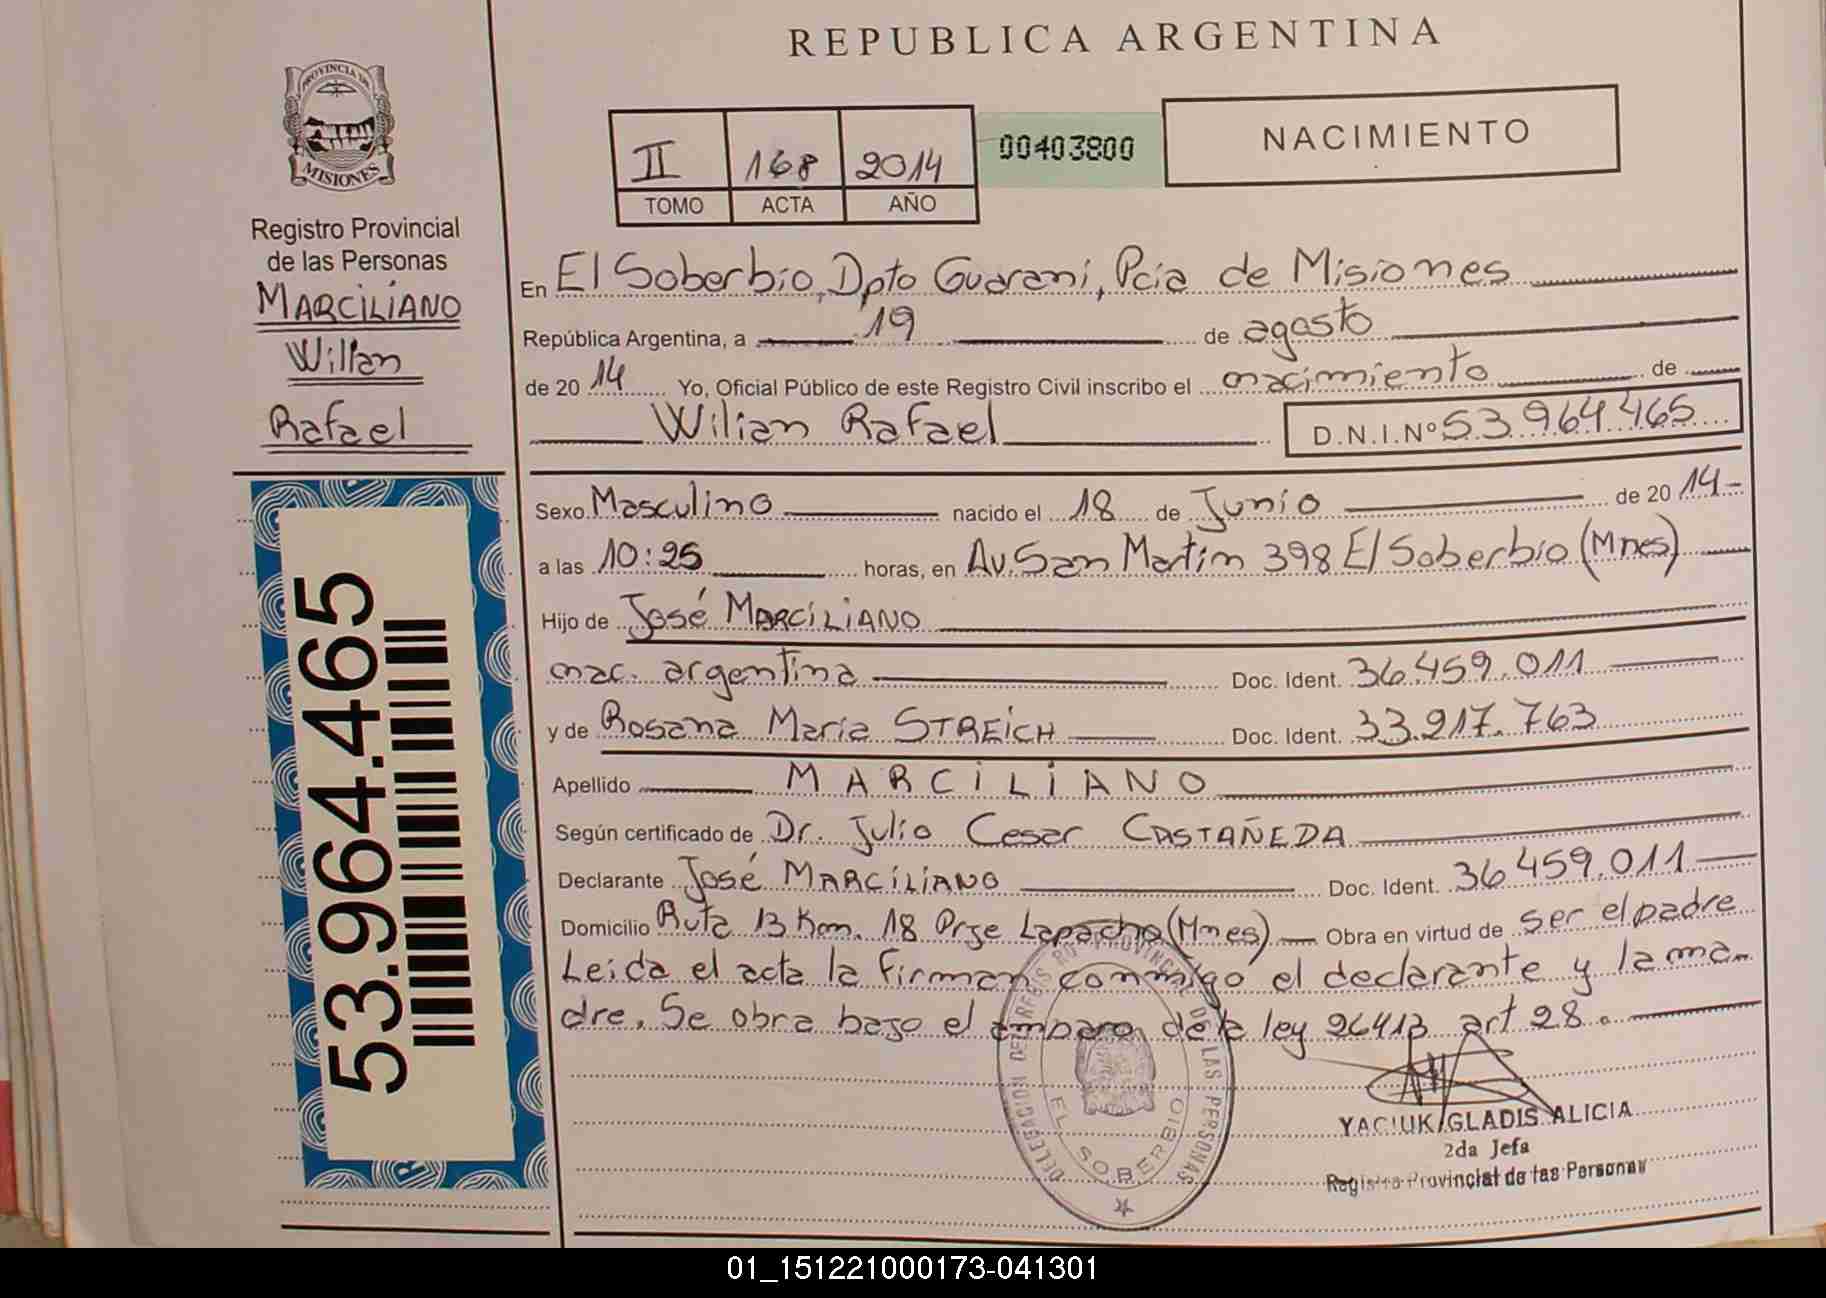 REPUBLICA ARGENTINA
PROVINCIA DE
MISIONES
Registro Provincial
de las Personas
MARCILIANO
Wilian
Rafael
53.964.465
II 168 2014
TOMO ACTA AÑO
00403800
NACIMIENTO
En El Soberbio, Dpto Guarani, Pcia de Misiones
República Argentina, a 19 de agosto
de 2014 Yo, Oficial Público de este Registro Civil inscribo el nacimiento de
Wilian Rafael D.N.I.Nº 53.964.465
Sexo Masculino nacido el 18 de Junio de 2014-
a las 10:25 horas, en Av. San Martin 398 El Soberbio (Mnes)
Hijo de José MARCILIANO
nac. argentina Doc. Ident. 36.459.011
y de Rosana Maria STREICH Doc. Ident. 33.917.763
Apellido MARCILIANO
Según certificado de Dr. Julio Cesar CASTAÑEDA
Declarante José MARCILIANO Doc. Ident. 36 459.011
Domicilio Ruta 13 Km. 18 Prje Lapacho (Mnes) Obra en virtud de ser el padre
Leida el acta la firman conmigo el declarante y la ma
dre. Se obra bajo el amparo de la ley 26413 art 28.
DELEGACION DEL REGISTRO PROVINCIAL DE LAS PERSONAS
EL SOBERBIO
YACIUK GLADIS ALICIA
2da Jefa
Registro Provincial de las Personas
01_151221000173-041301